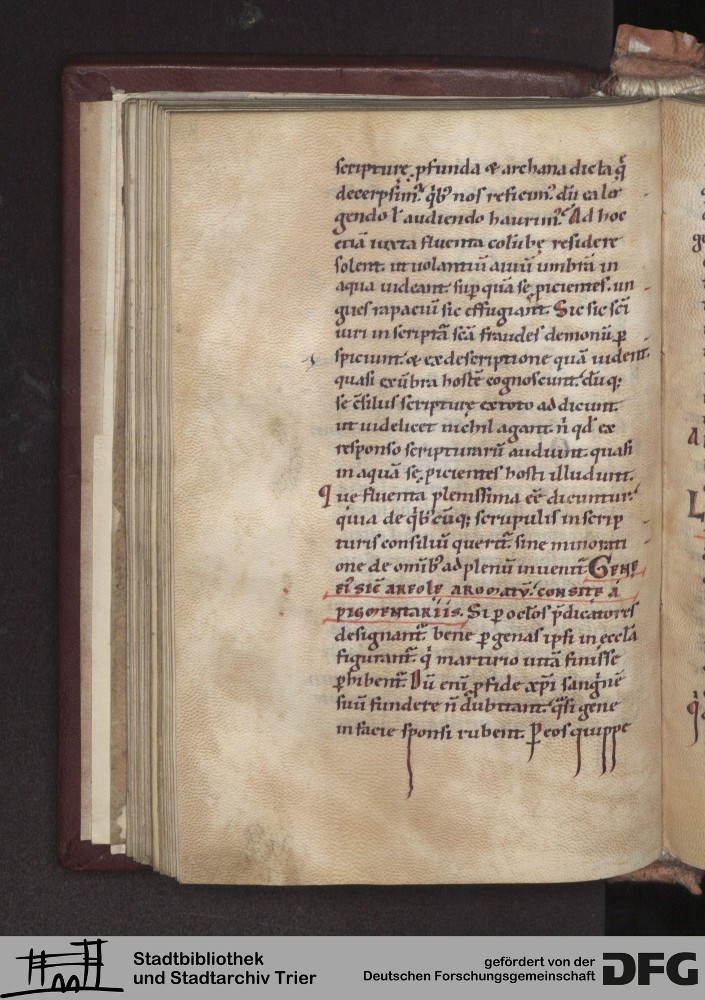 scripturę ꝓfunda & archana dicta q̄
decerpsim᷒. qͥbꝰ nos reficim᷒. dū ea le
gendo ł audiendo haurim᷒. Ad hoc
etiā iuxta fluenta colūbę residere
solent. ut uolantiū auiū umbrā in
aqua uideant. sup quā sę ꝓicientes. un
gues rapaciū sic effugiant. Sic sic sc̄i
uiri in scriptā scā fraudes demoniū ꝑ
spiciunt. & ex descriptione quā uident.
quasi ex ūbra hostē cognoscunt. dūq;
se c̄silus scripturę ex toto addicunt.
ut uidelicet nichil agant. n̄ qd̄ ex
responso scripturarū audiunt. quasi
in aquā sę ꝓicientes hosti illudunt.
Que fluenta plenissima eē dicuntur.
quia de qͥbꝰcūq; scrupulis in scrip
turis consiliū querit̄. sine minorati
one de omībꝰ ad plenū inuenit̄. GENE
EIꝰ SIC̄ AREOLE AROMATŪ. CONSITE A
PIGMENTARIIS. Si ꝑ oclōs p̄dicatores
designant̄. bene ꝑ genas ipsi in ęcclā
figurant̄. q̄ martirio uitā finisse
ꝑhibent̄. Dū eni ꝓ fide xp̄i sanguinē
suū fundere n̄ dubitant. qͣsi gene
in facie sponsi rubent. Per eos quippe
Stadtbibliothek
und Stadtarchiv Trier
gefördert von der
Deutschen Forschungsgemeinschaft
DFG